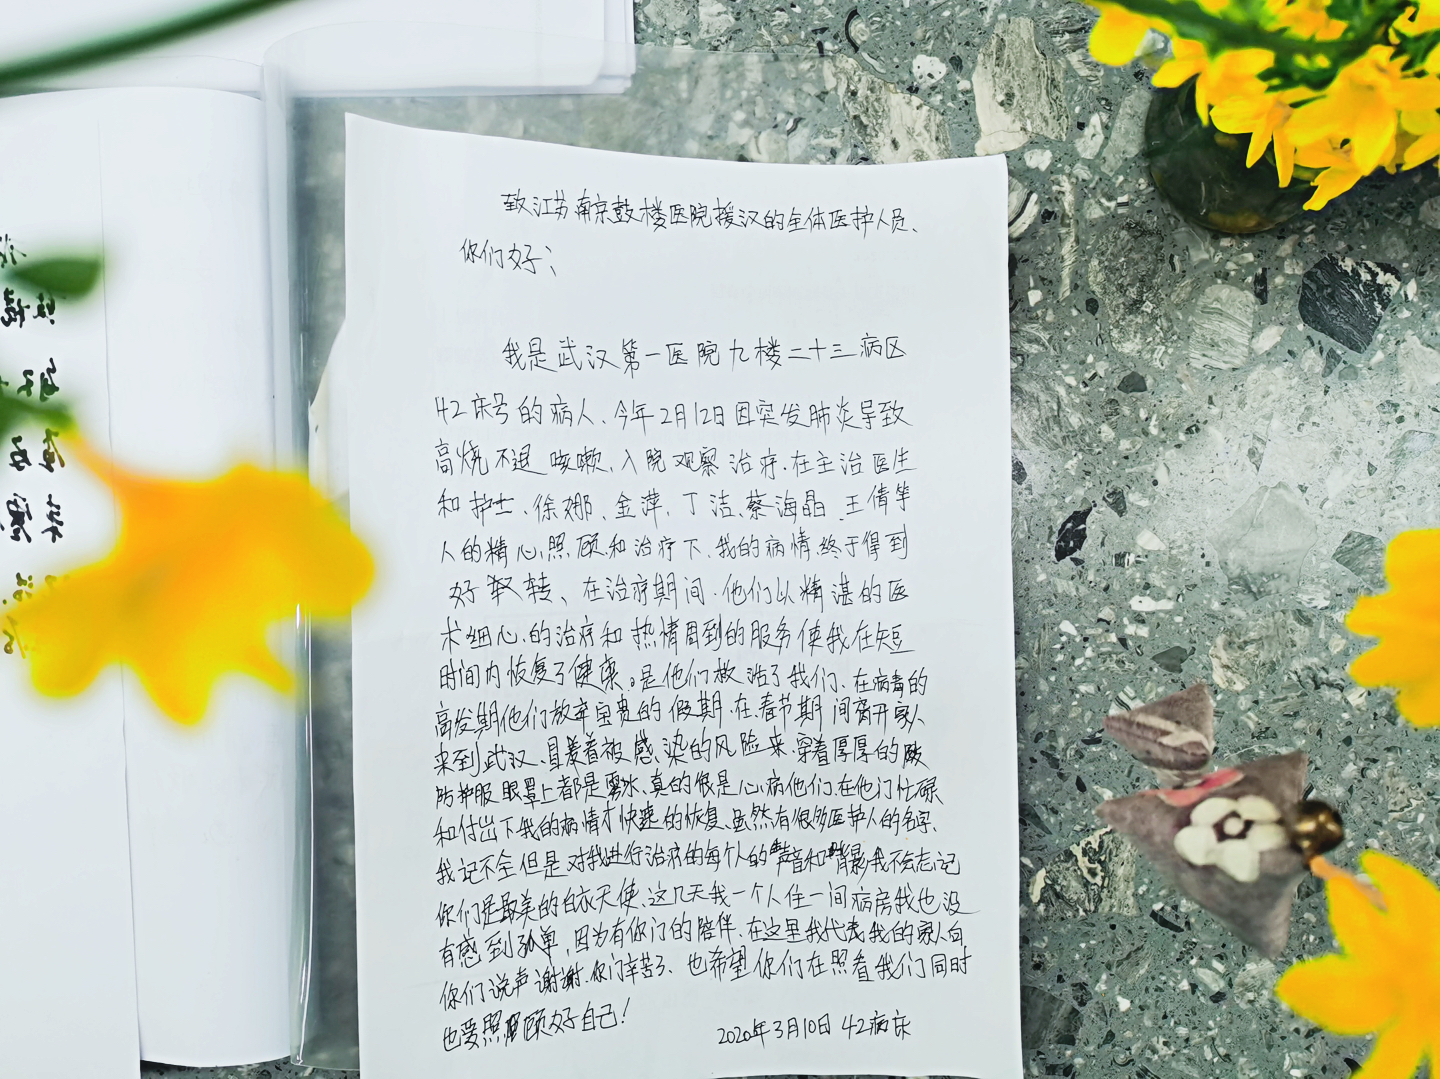 致江苏南京鼓楼医院援汉的全体医护人员、
你们好；
我是武汉第一医院九楼二十三病区
42床号的病人、今年2月12日因突发肺炎导致
高烧不退咳嗽、入院观察治疗.在主治医生
和护士、徐娜、金萍、丁洁、蔡海晶、王倩等
人的精心照顾和治疗下、我的病情终于得到
好转、在治疗期间、他们以精湛的医
术细心的治疗和热情周到的服务使我在短
时间内恢复了健康。是他们救治了我们、在病毒的
高发期他们放弃宝贵的假期、在春节期间离开家人
来到武汉、冒着被感染的风险来、穿着厚厚的
防护服眼罩上都是雾水、真的很是心病他们、在他门忙碌
和付出下我的病情才快速的恢复、虽然有很多医护人的名字、
我记不全但是对我进行治疗的每个人的声音和背影我不会忘记
你们是最美的白衣天使、这几天我一个人住一间病房我也没
有感到孤单，因为有你门的陪伴、在这里我代表我的家人向
你们说声谢谢.你门辛苦了、也希望你们在照看我们同时
也要照顾好自己！
2020年3月10日 42病床